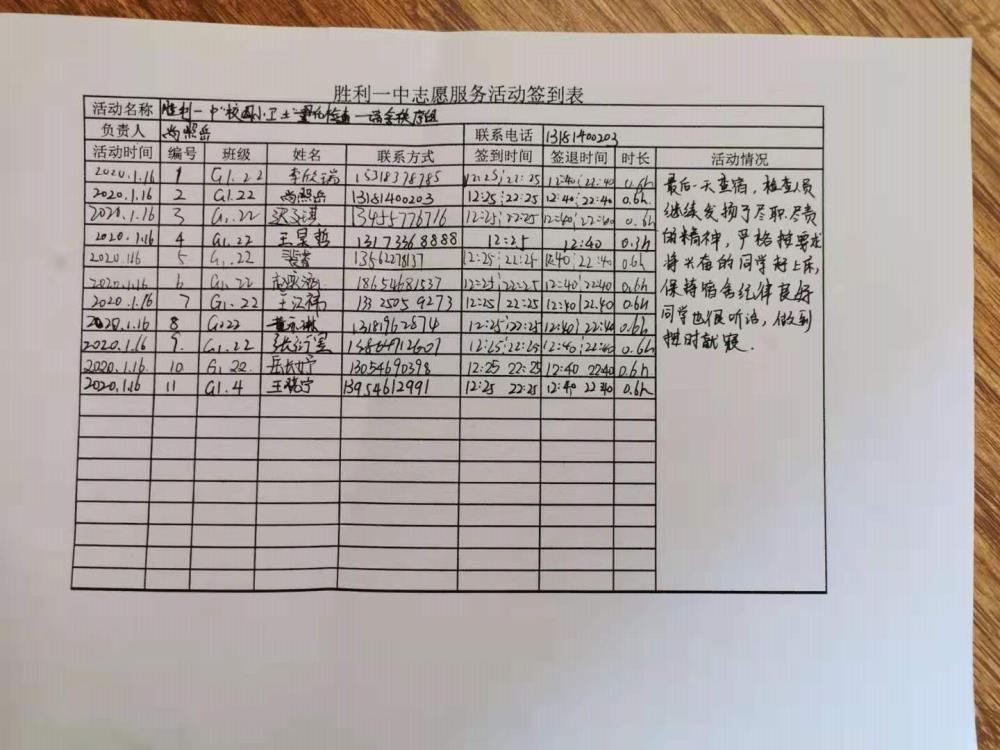 胜利一中志愿服务活动签到表
活动名称 胜利一中"校园小卫士"量化检查—宿舍秩序组
负责人 尚熙岳 联系电话 13181400203
活动时间 编号 班级 姓名 联系方式 签到时间 签退时间 时长 活动情况
2020.1.16 1 G1.22 李欣瑞 15318378785 12:25;22:25 12:40;22:40 0.6h
2020.1.16 2 G1.22 尚熙岳 13181400203 12:25;22:25 12:40;22:40 0.6h
2020.1.16 3 G1.22 13455776716 12:25;22:25 12:40;22:40 0.6h
2020.1.16 4 G1.22 王昊哲 13173368888 12:25 12:40 0.3h
2020.1.16 5 G1.22 13562278137 12:25;22:25 12:40;22:40 0.6h
2020.1.16 6 G1.22 18654681537 12:25;22:25 12:40;22:40 0.6h
2020.1.16 7 G1.22 王江祎 13325059273 12:25;22:25 12:40;22:40 0.6h
2020.1.16 8 G1.22 13181962874 12:25;22:25 12:40;22:40 0.6h
2020.1.16 9. G1.22 12:25;22:25 12:40;22:40 0.6h
2020.1.16. 10 G1.22. 岳长妤 13054690398 12:25 22:25 12:40 22:40 0.6h
2020.1.16 11 G1.4 王晓宁 13954612991 12:25 22:25 12:40 22:40 0.6h
最后一天查宿，检查人员
继续发扬了尽职尽责
的精神，严格按要求
将兴奋的同学赶上床，
保持宿舍纪律良好
同学也很听话，做到
按时就寝.